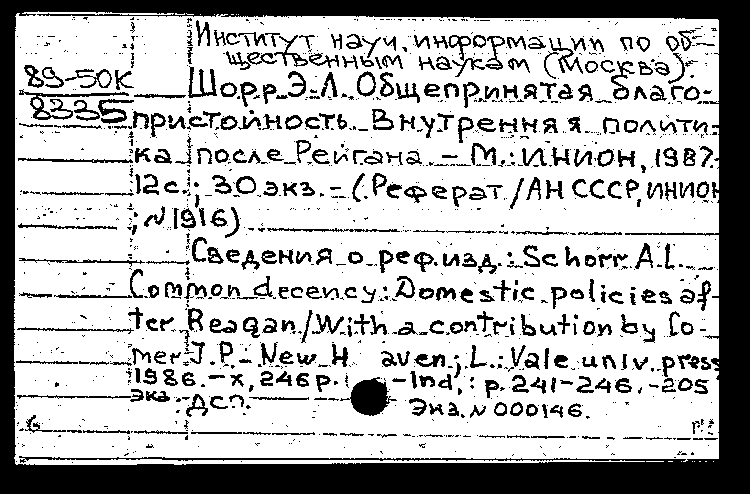 Институт науч. информации по об-
щественным наукам (Москва).
89-50К
8335
Шорр Э.Л. Общепринятая благо-
пристойность. Внутренняя полити-
ка после Рейгана. – М.: ИНИОН, 1987.
12с.; 30 экз. – (Реферат / АН СССР, ИНИОН
; N 1916)
Сведения о реф. изд.: Schorr A.L.
Common decency: Domestic policies af-
ter Reagan / With a contribution by Co-
mer J.P. – New Haven; L.: Vale univ. press
1986. – x, 246 p. – Ind.: p. 241-246. – 205
экз. ДСП.
Экз. N 000146.